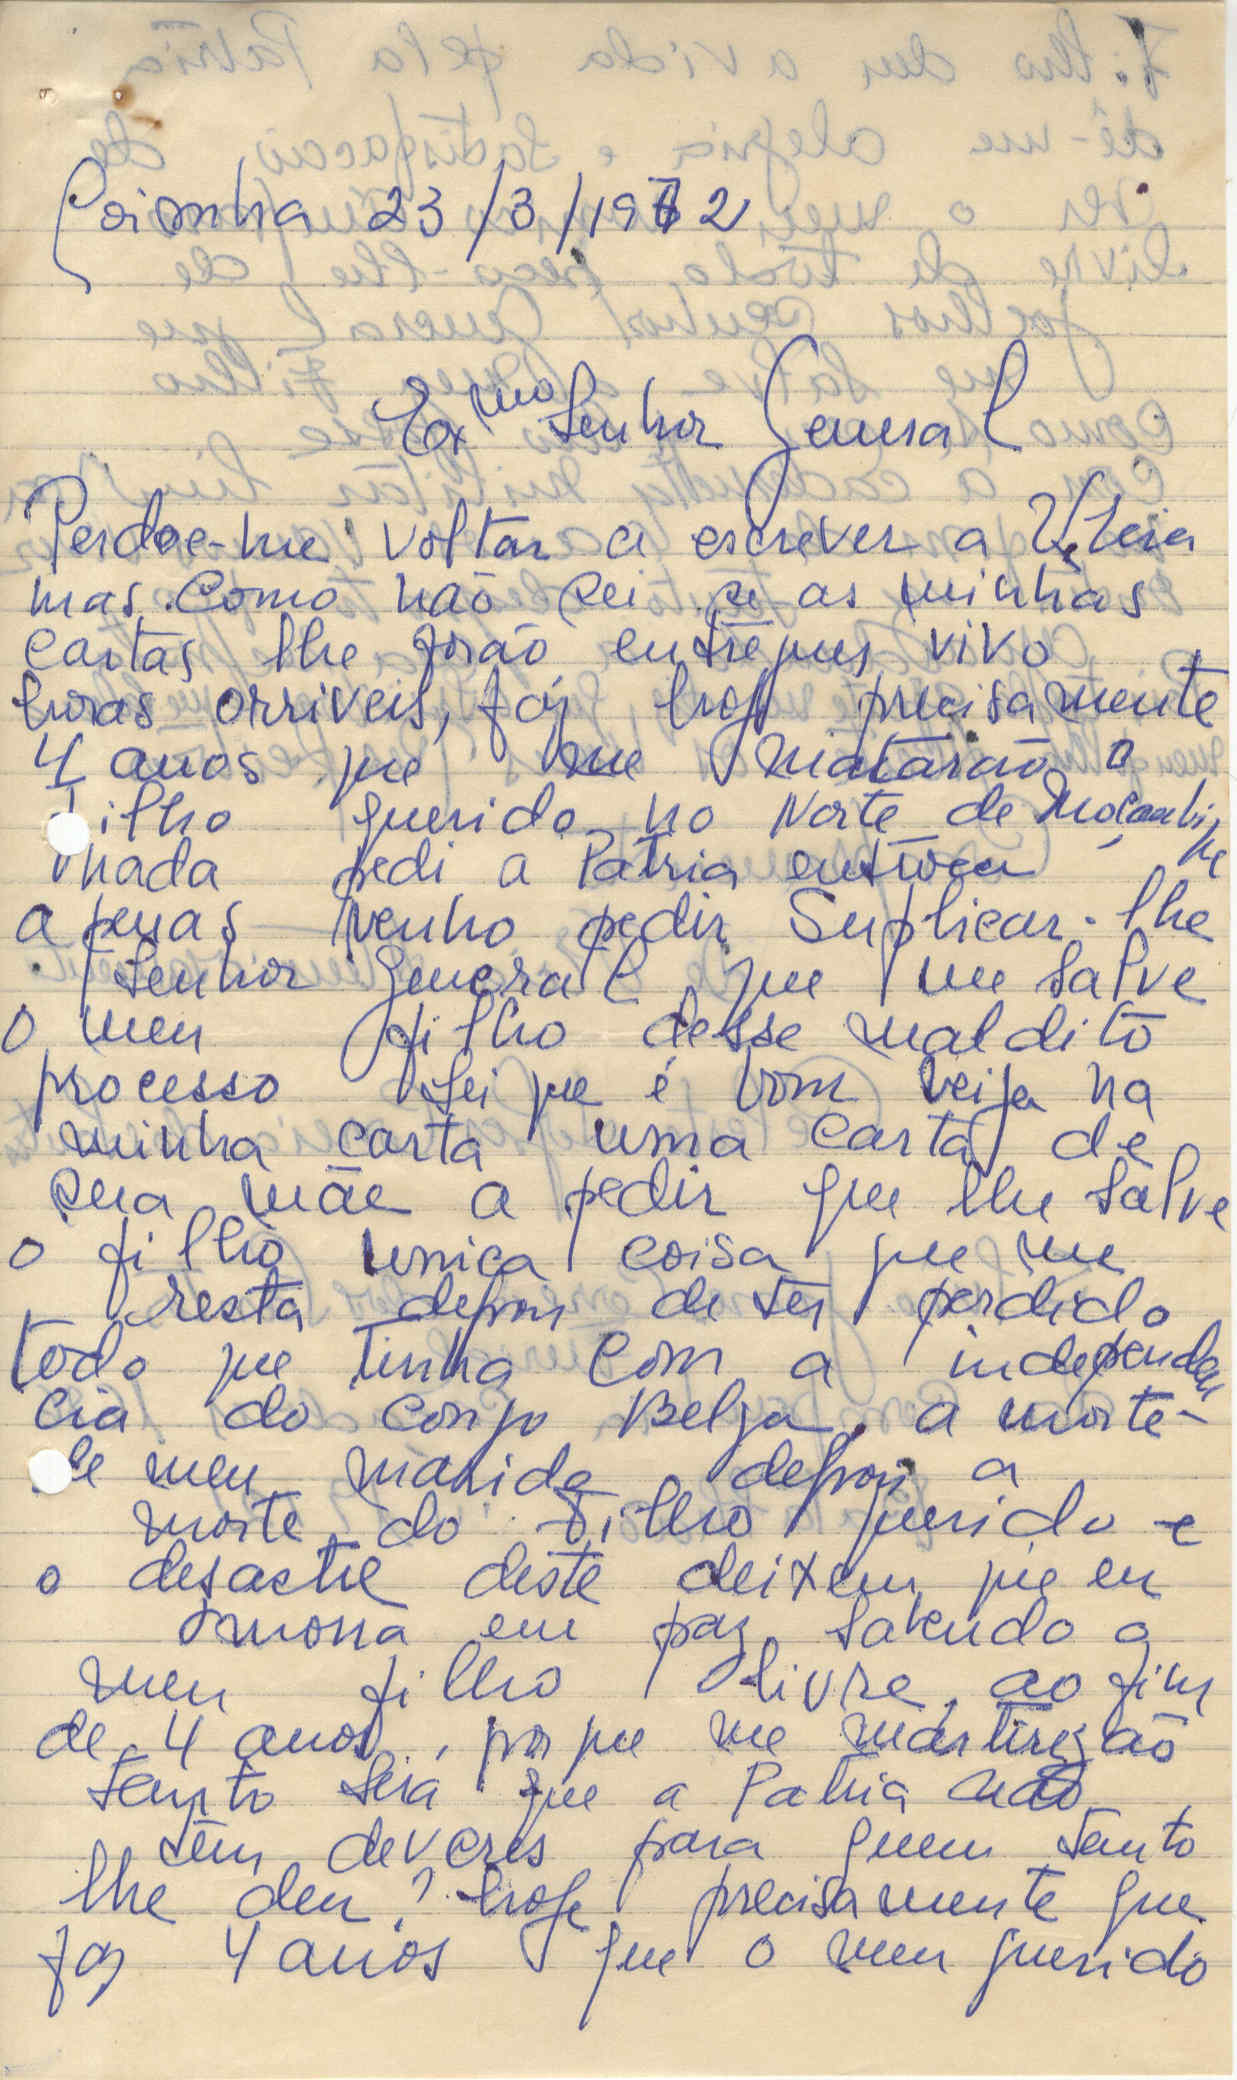 Coimbra 23/3/1972
Exmo Senhor General
Perdoe-me voltar a escrever a V.Exia
mas como não sei se as minhas
cartas lhe forão entregues vivo
horas orriveis, fáz hoje precisamente
4 anos que me matarão o
filho querido no Norte de Moçambi
que
nada pedi a Patria entroca
apenas venho pedir Suplicar-lhe
Senhor General que me salve
o meu filho desse maldito
processo Sei que é bom veija na
minha carta uma carta de
sua mãe a pedir que lhe salve
o filho unica coisa que me
resta depois de ter perdido
todo que tinha com a independen
cia do Congo Belga, a morte
de meu marido depois a
morte do filho querido e
o desastre deste deixem que eu
morra em paz sabendo o
meu filho livre, ao fim
de 4 anos, porque me martirizão
tanto Será que a Patria não
têm deveres para quem tanto
lhe deu? hoje precisamente que
faz 4 anos que o meu querido